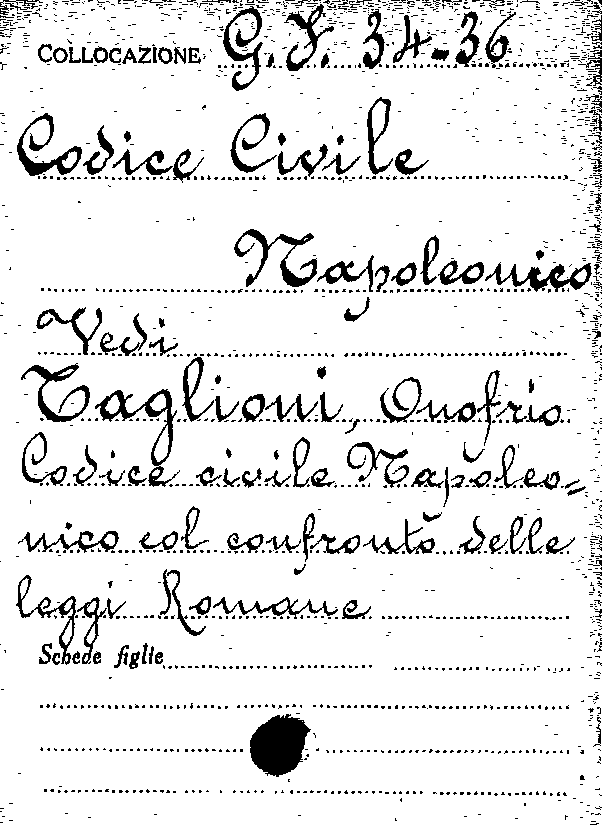 COLLOCAZIONE G. F. 34-36
Codice Civile
Napoleonico
Vedi
Taglioni, Onofrio
Codice civile Napoleo=
nico col confronto delle
leggi Romane
Schede figlie